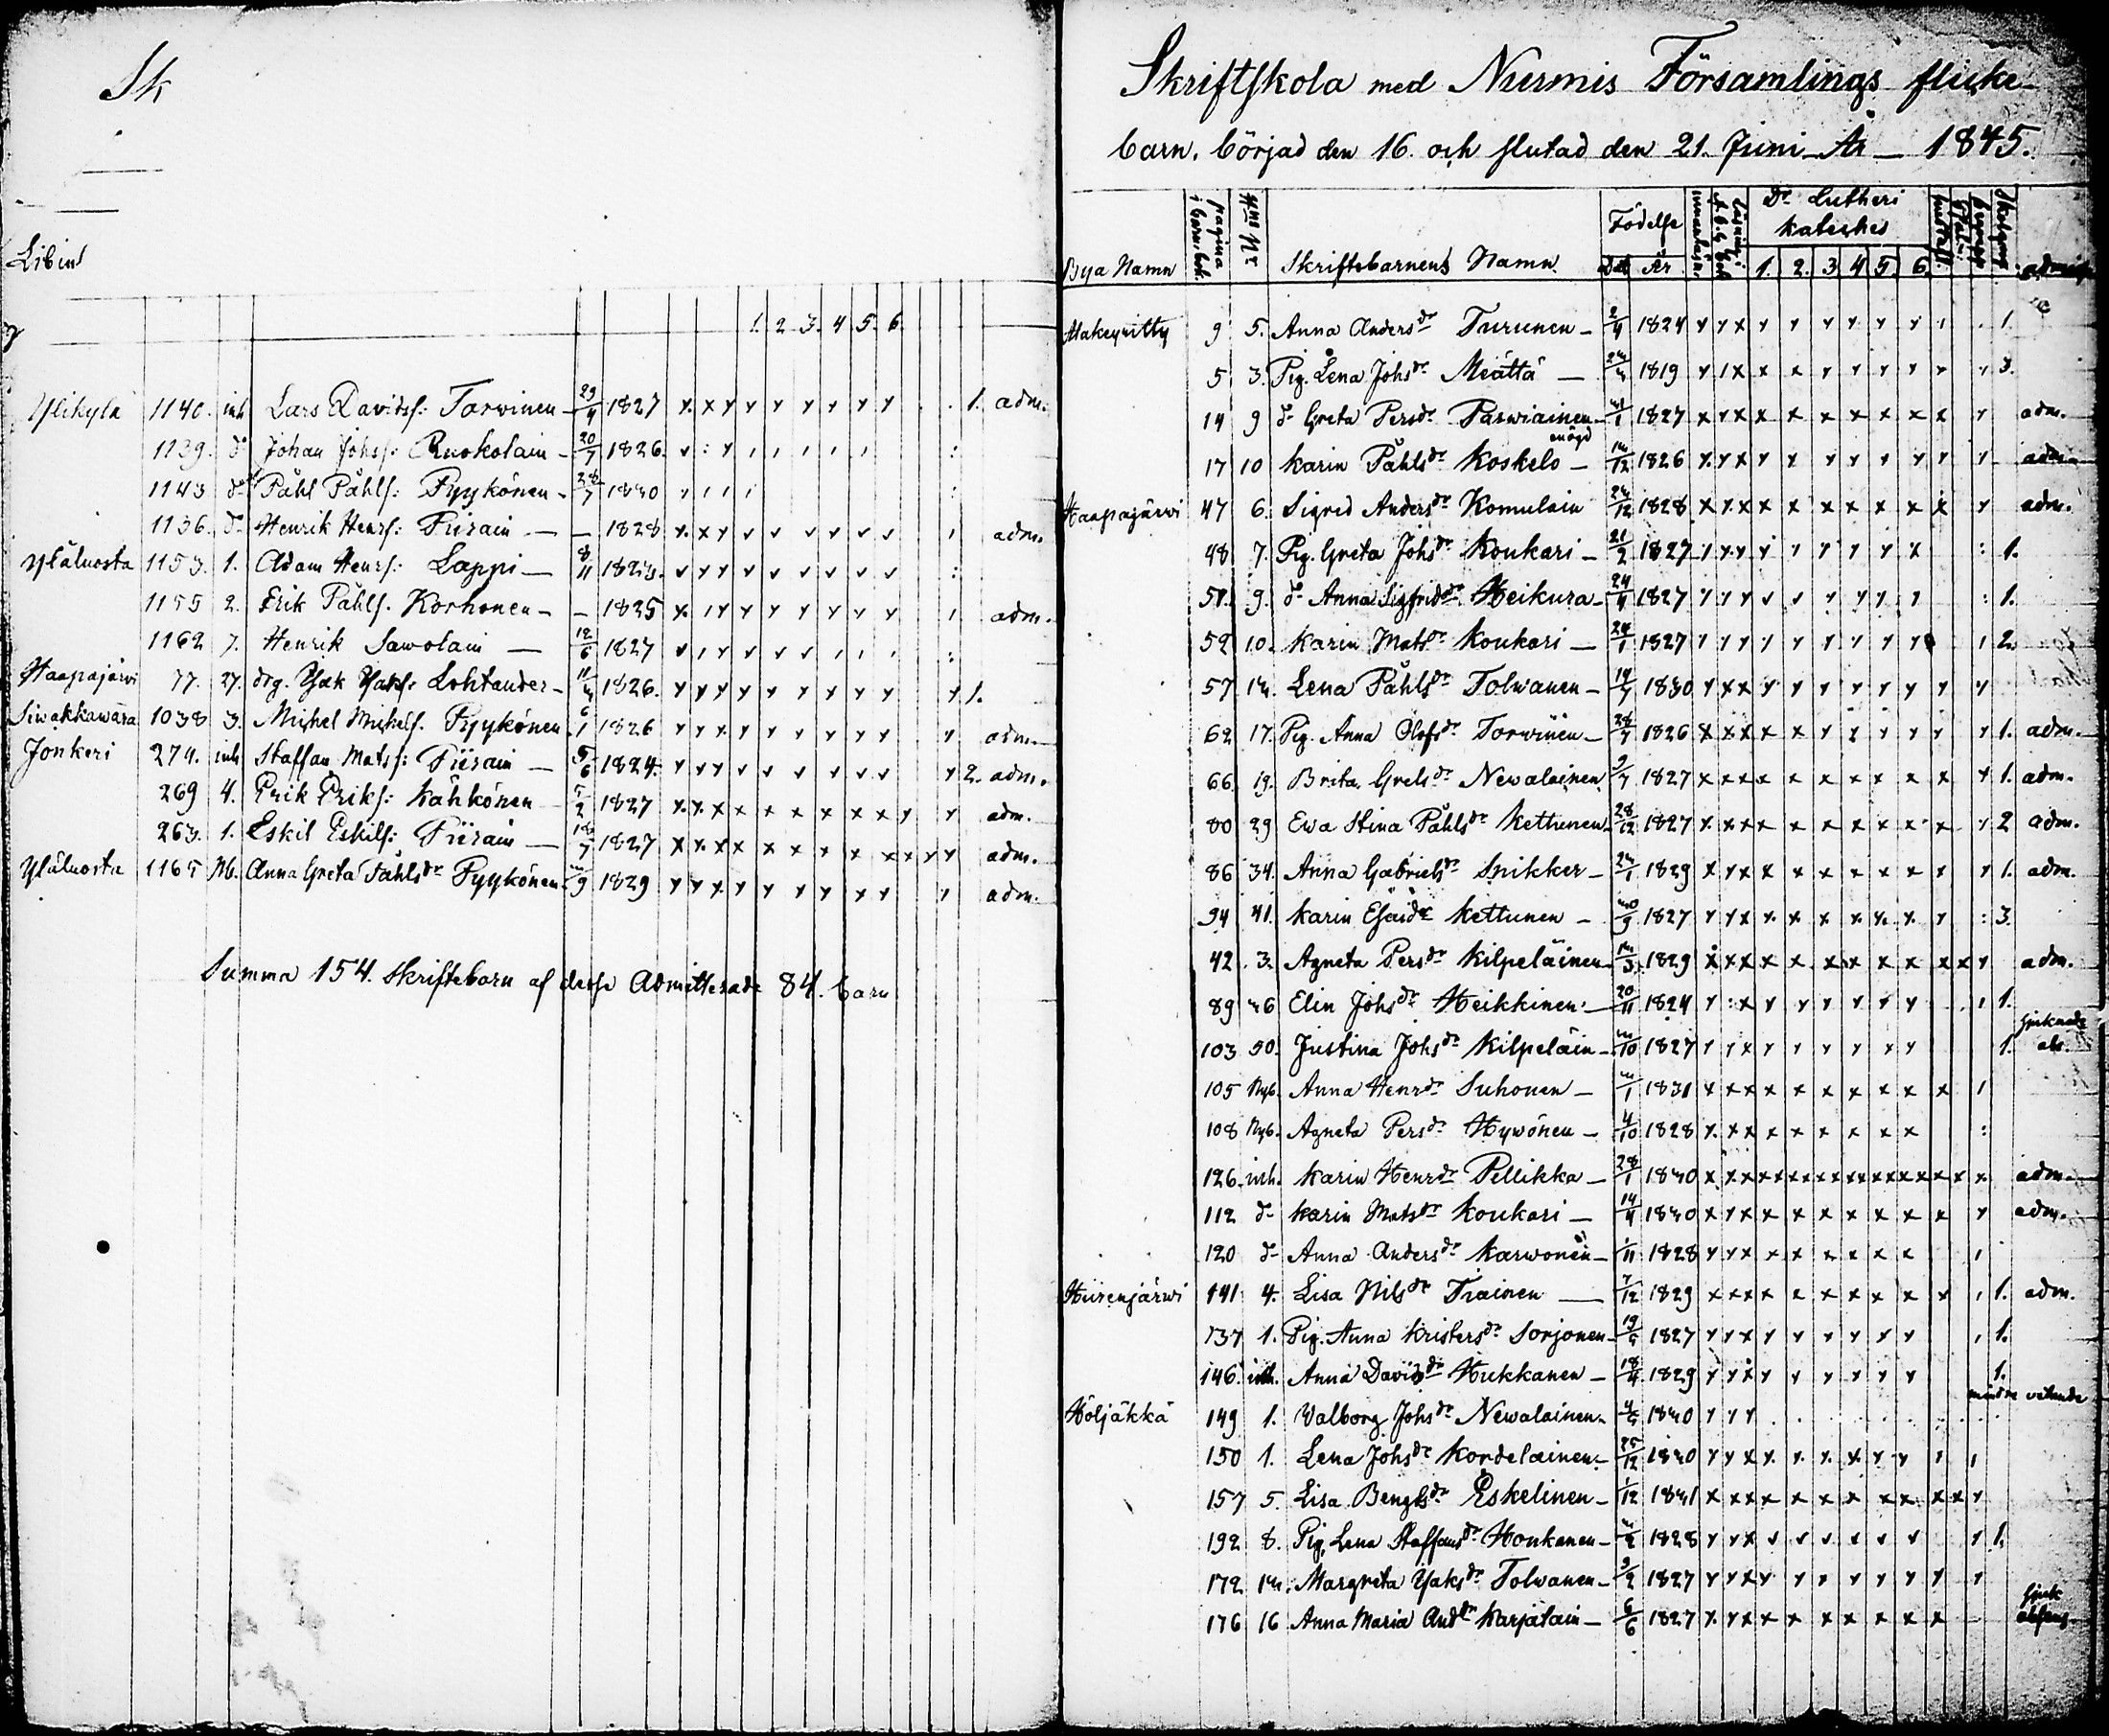 Sk
Libins
1. 2. 3. 4. 5. 6.
Ylikylä 1140. inh Lars Davidsf: Torvinen 29/4 1827 1. adm.
1139. d:o Johan Johsf: Ruokolain 20/7 1826.
1143 d:o Påhl Påhlf: Pyykönen 28/7 1830
1136. d:o Henrik Henrf: Piirain 1828 adm.
Yläluosta 1153. 1. Adam Henrf: Lappi 8/11
1155 2. Erik Påhlf. Korhonen 1825 adm.
1162 7. Henrik Sawolain 12/6 1827
Haapajärvi 77. 27. drg. Isak Isaksf: Lohtander 1826. 1.
Siwakkawaara 1038 3. Michel Michelsf. Pyykönen 6/1 1826 adm.
Jonkeri 274. inh Staffan Matsf: Piirain 5/6 1824. 2. adm.
269 4. Erik Eriksf: Kähkönen 5/2 1827 adm.
263. 1. Eskil Eskilsf: Piirain 1827 adm.
Yläluosta 1165 Anna Greta Påhlsdr Pyykönen 1829 adm.
Summa 154. Skriftebarn af desse Admitterade 84. barn
Skriftskola med Nurmis Församlings flicke-
barn. börjad den 16. och slutad den 21. Juni År 1845.
Dr Lutheri
Bya Namn pagina i barnbok. Hms No Skriftebarnens Namn Födelse innanläsn. kateches
Dat År 1. 2. 3. 4. 5. 6.
Makeyritty 9 5. Anna Andersdr Turunen 2/4 1824 1.
5 3. Pig. Lena Johsdr Määttä 1819 3.
14 9 d:o Greta Persdr Parwiainen 1827 adm.
17 10 Karin Påhlsdr Koskelo 1826 adm.
Haapajärwi 47 6. Sigrid Andersdr Komulain 1828 adm.
48 7. Pig. Greta Johsdr Koukari 21/2 1827 1.
51. 9. d:o Anna Sigfridsdr Heikura 24/4 1827 1.
52 10. Karin Matsdr Koukari 24/1 1827 2.
57 Lena Påhlsdr Tolwanen 1830
62 17. Pig. Anna Olofsdr Torwinen 1826 1. adm.
66 19. Brita Grelsdr Newalainen 1827 1. adm.
80 29 Ewa Stina Påhlsdr Kettunen 28/12 1827 2 adm.
86 34. Anna Gabrielsdr Snikker 1829 1. adm.
94 41. Karin Esaidr Kettunen 1827 3.
42 3. Agneta Persdr Kilpeläinen 1829 adm.
89 Elin Johsdr Heikkinen 20/11 1824 1.
103 50. Justina Johsdr Kilpeläin 1827 1.
105 Nyb. Anna Henrdr Suhonen 1831
108 Nyb. Agneta Persdr Hywönen 4/10 1828
126. inh. Karin Henrdr Pellikka 28/1 1830 adm.
112 d:o Karin Matsdr Koukari 14/4 1830 adm.
120 d:o Anna Andersdr Karwonen 1/11 1828
Hiirenjärwi 141 4. Lisa Nilsdr Tiainen 7/12 1829 1. adm.
137 1. Pig. Anna Kristersdr Sorjonen 1827 1.
146. inh. Anna Davidsdr Hukkanen 18/4 1829 1.
Höljäkkä 149 1. Valborg Johsdr Newalainen 1830 mindre vetande
150 1. Lena Johsdr Kordelainen 25/12 1830
157 5. Lisa Bengtsdr Eskelinen 1/12 1831
192 8. Pig. Lena Staffansdr Honkanen 1828 1.
172 Margreta Isaksdr Tolwanen 1827
176 16 Anna Maria Anddr Karjalain 6/6 1827